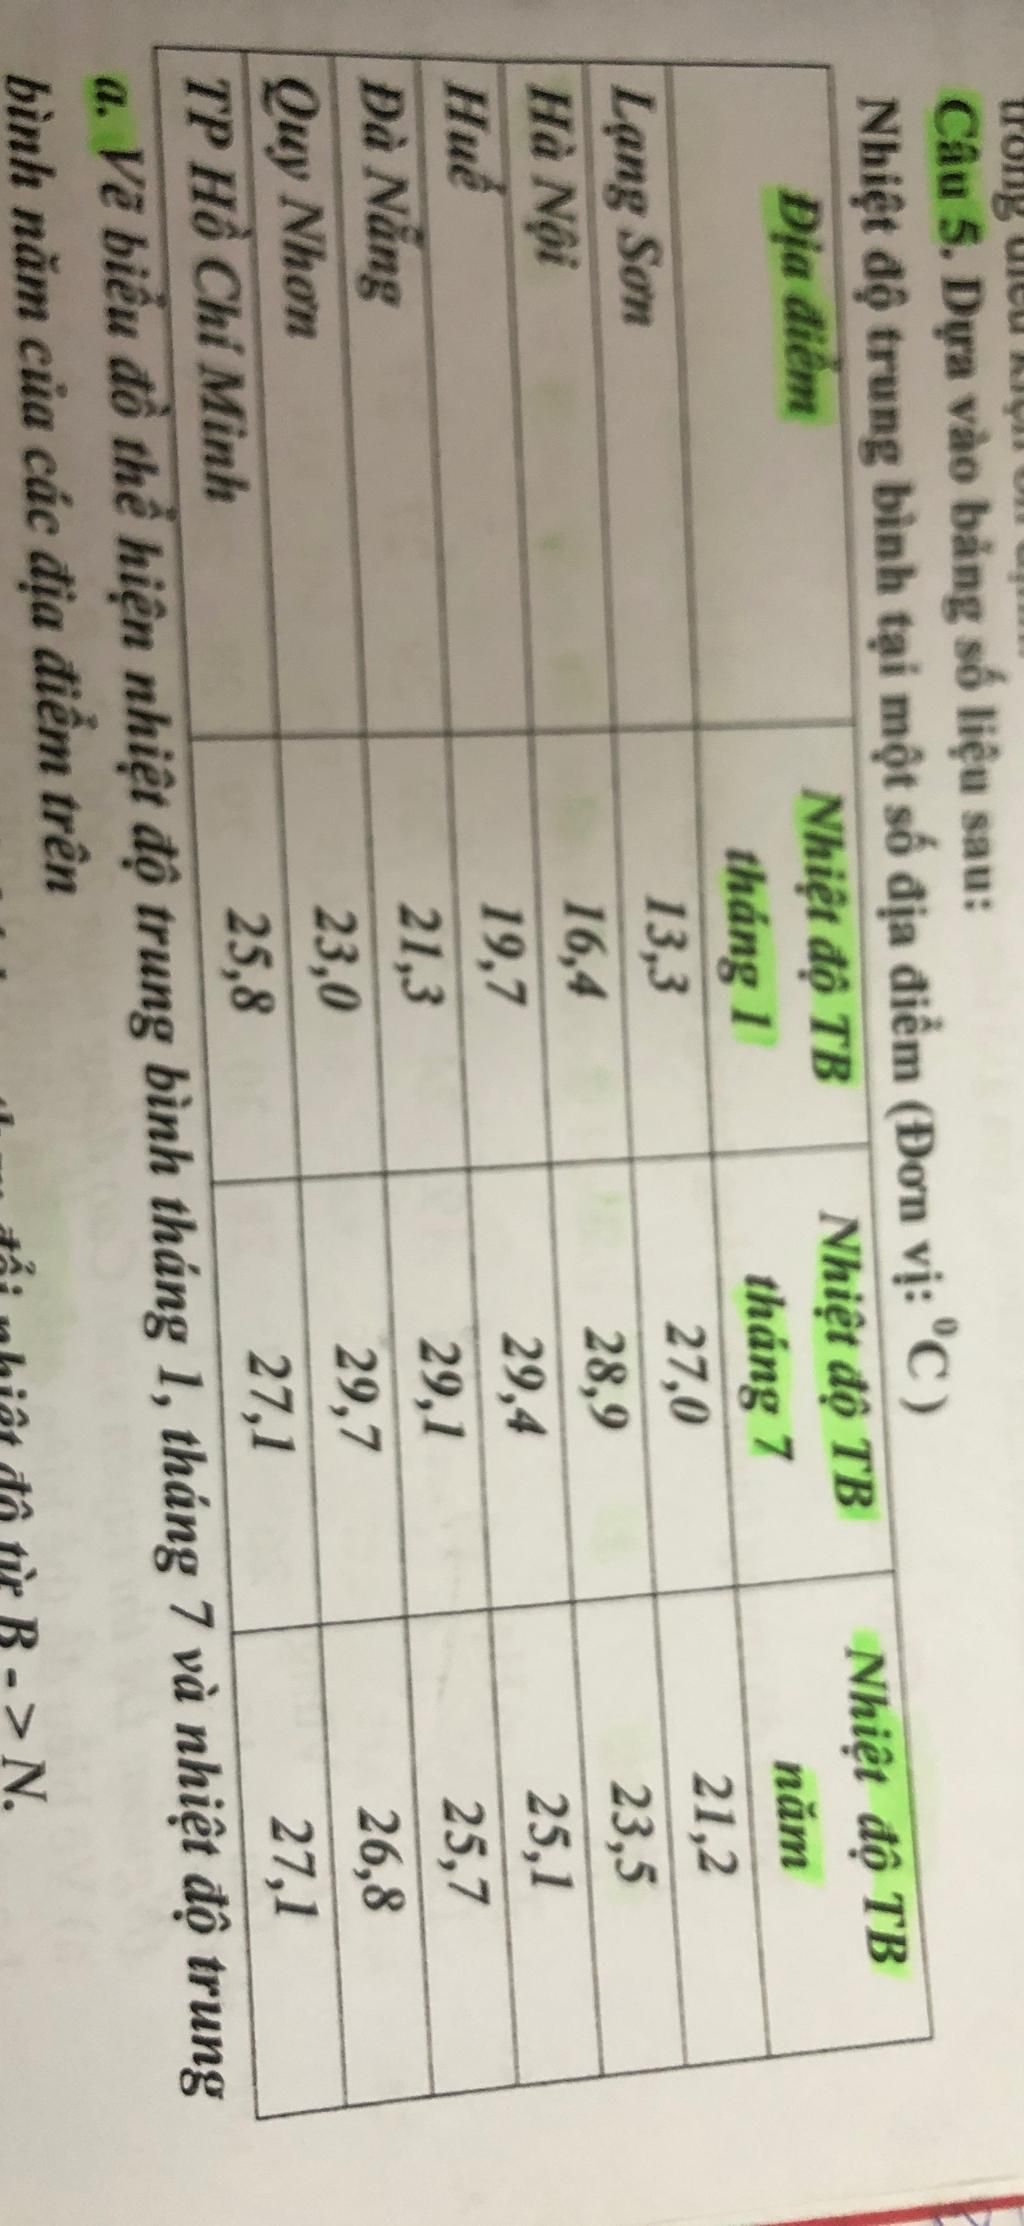 Câu 5. Dựa vào bảng số liệu sau:
Nhiệt độ trung bình tại một số địa điểm (Đơn vị: ⁰C )
Địa điểm Nhiệt độ TB tháng 1 Nhiệt độ TB tháng 7 Nhiệt độ TB năm
Lạng Sơn 13,3 27,0 21,2
Hà Nội 16,4 28,9 23,5
Huế 19,7 29,4 25,1
Đà Nẵng 21,3 29,1 25,7
Quy Nhơn 23,0 29,7 26,8
TP Hồ Chí Minh 25,8 27,1 27,1
a. Vẽ biểu đồ thể hiện nhiệt độ trung bình tháng 1, tháng 7 và nhiệt độ trung
bình năm của các địa điểm trên
đổi nhiệt độ từ B - > N.